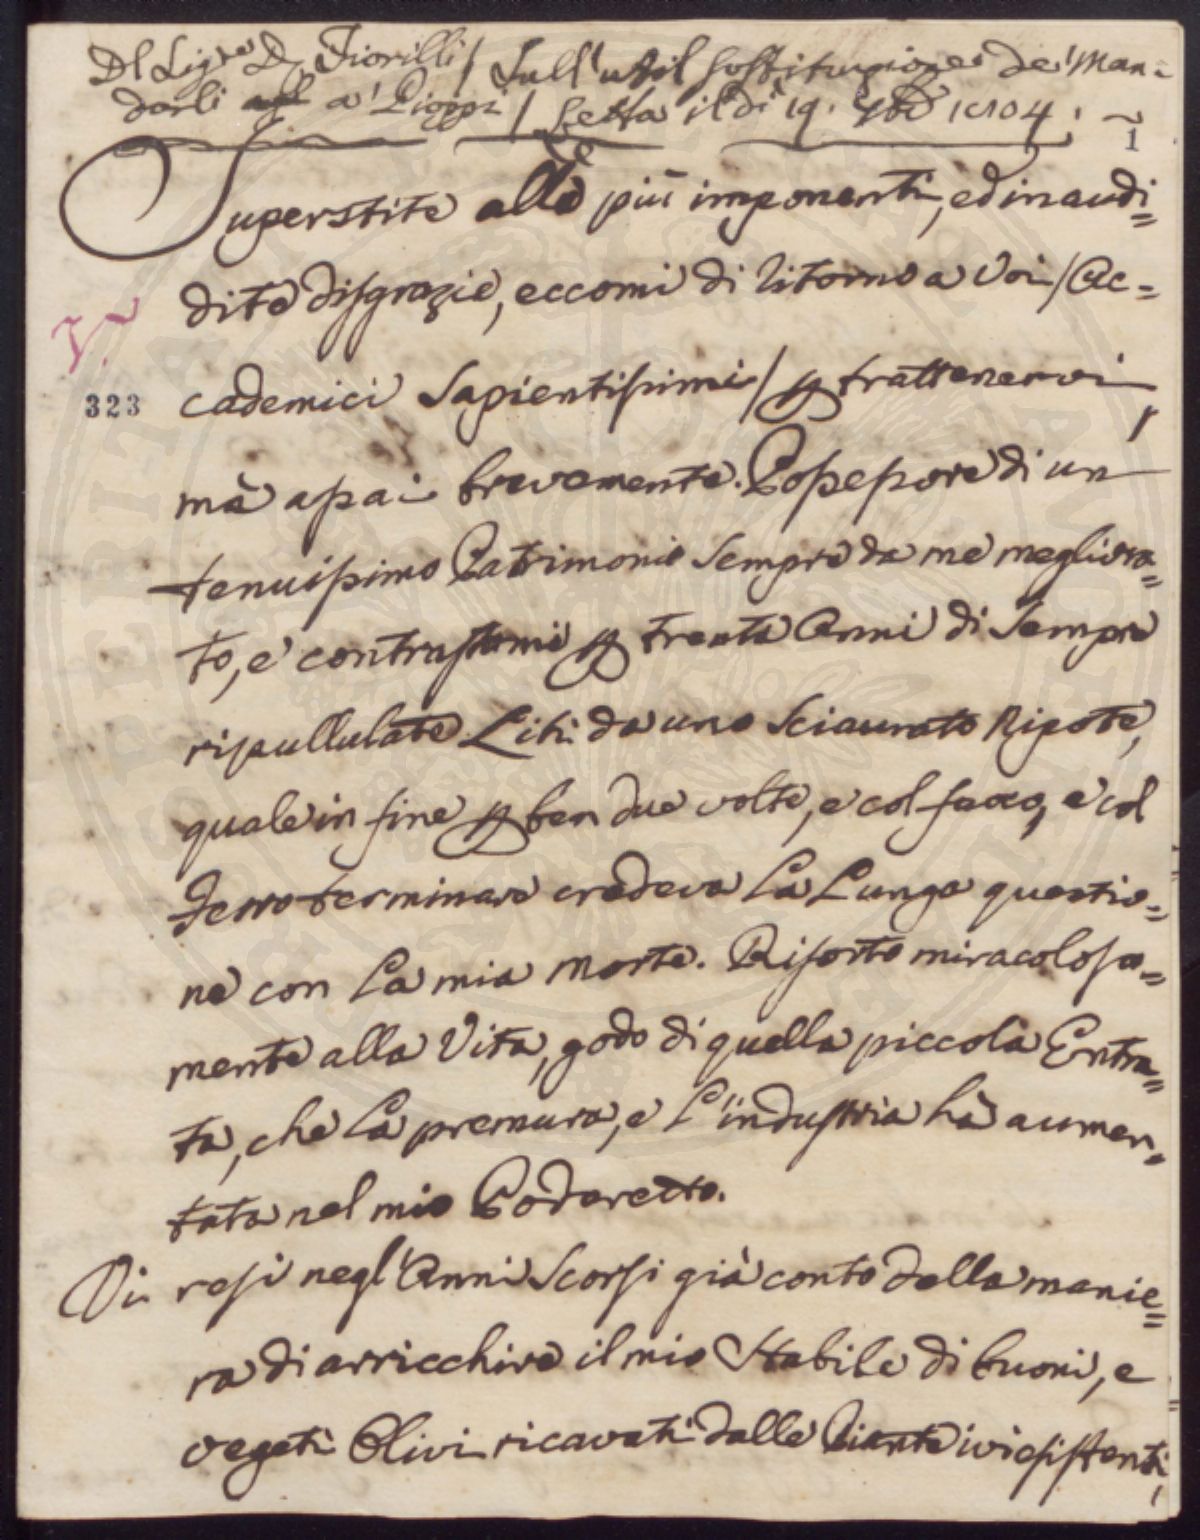 Del Sig.re D. Fiorilli / Sull'util sostituzione de' Man-
dorli a' Pioppi / Letta il dì 19. 9bre 1804.
1
Superstite alle più imponenti, ed inaudi=
dite disgrazie, eccomi di ritorno a Voi / Ac=
V.
323
cademici Sapientissimi / p trattenervi,
mà assai brevemente. Possessore di un
tenuissimo Patrimonio sempre da me megliora=
to, e contrastomi p trenta Anni di sempre
ripullulate Liti da uno sciaurato Nipote,
quale in fine p ben due volte, e col fuoco, e col
Ferro terminare credeva la Lunga questio=
ne con La mia Morte. Risorto miracolosa=
mente alla Vita, godo di quella piccola Entra=
ta, che La premura, e L'industria hà aumen=
tata nel mio Poderetto.
Vi resi negl'Anni Scorsi già conto della manie=
ra di arricchire il mio Stabile di buoni, e
vegeti Olivi ricavati dalle Piante ivi esistenti,